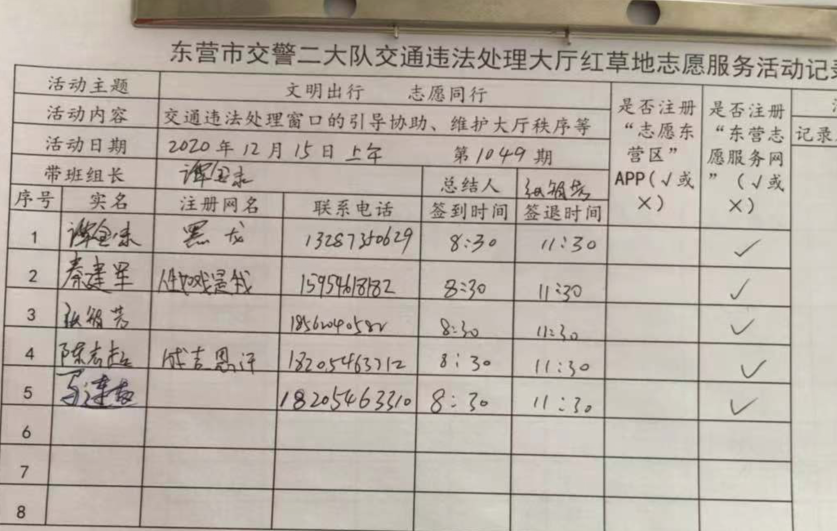 东营市交警二大队交通违法处理大厅红草地志愿服务活动记录
活动主题 文明出行 志愿同行
活动内容 交通违法处理窗口的引导协助、维护大厅秩序等
活动日期 2020年12月15日上午 第1049期
带班组长 总结人
是否注册“志愿东营区”APP(√或×)
是否注册“东营志愿服务网”(√或×)
记录
序号 实名 注册网名 联系电话 签到时间 签退时间
1 黑龙 13287350629 8:30 11:30 ✓
2 秦建军 15954618182 8:30 11:30 ✓
3 8:30 11:30 ✓
4 成吉思汗 18205463712 8:30 11:30 ✓
5 18205463310 8:30 11:30 ✓
6
7
8